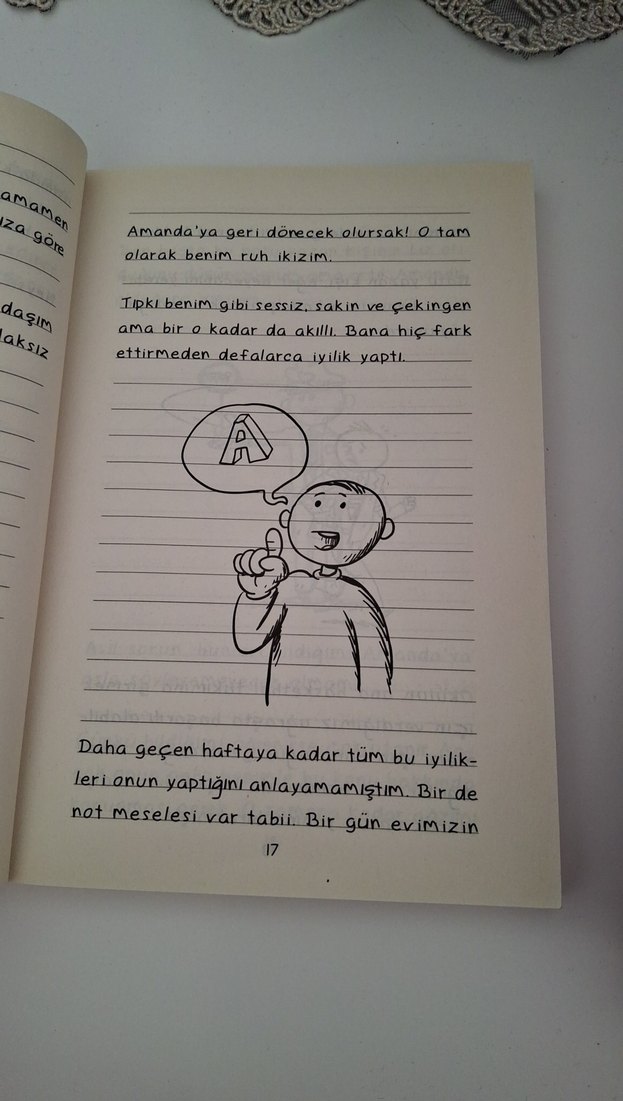 amamen
ıza göre
daşım
laksız
Amanda'ya geri dönecek olursak! O tam
olarak benim ruh ikizim.
Tıpkı benim gibi sessiz, sakin ve çekingen
ama bir o kadar da akıllı. Bana hiç fark
ettirmeden defalarca iyilik yaptı.
A
Daha geçen haftaya kadar tüm bu iyilik-
leri onun yaptığını anlayamamıştım. Bir de
not meselesi var tabii. Bir gün evimizin
17